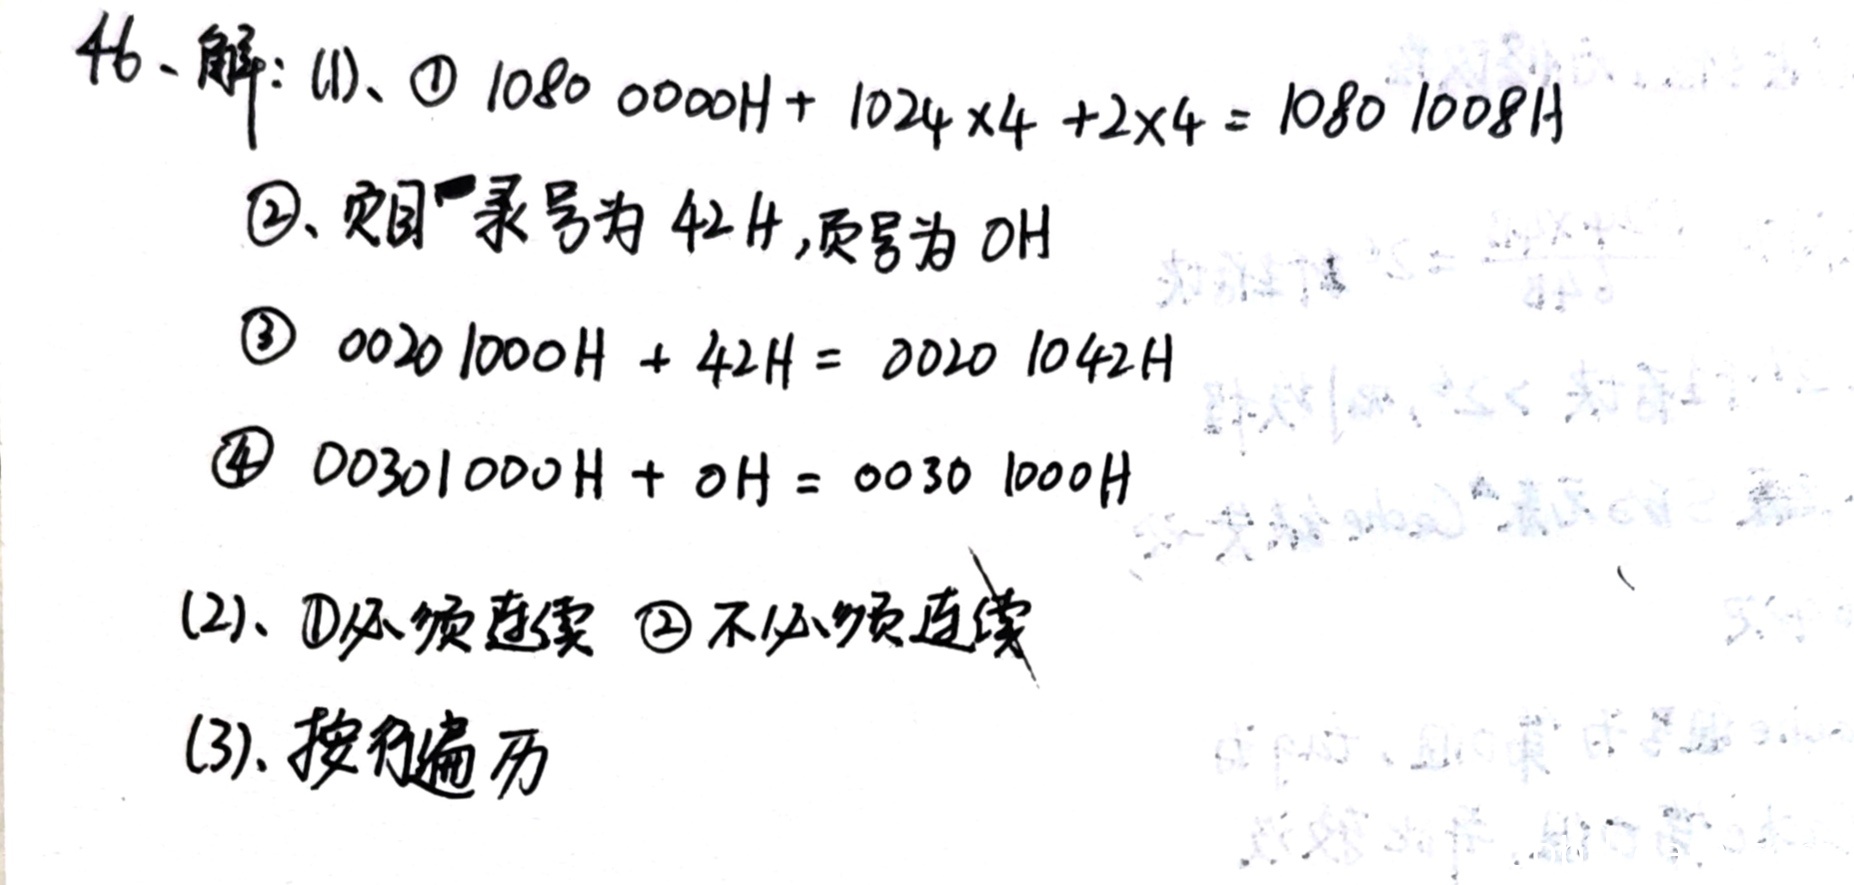 46、解：(1)、① 1080 0000H + 1024×4 +2×4 = 1080 1008H
②、页目录号为 42H，页号为 0H
③ 0020 1000H + 42H = 0020 1042H
④ 00301000H + 0H = 0030 1000H
(2)、①必须连续 ②不必须连续
(3)、按行遍历